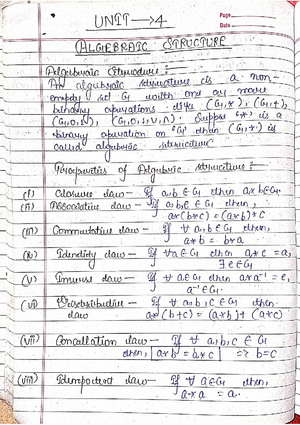 Page
Date
UNIT → 4
ALGEBRAIC STRUCTURE
Algebraic Structure :-
An algebraic structure is a non-
empty set G with one or more
binary operations. like (G,*), (G,+),
Suppose (*) is a
binary operation on 'G' then (G,*) is
called algebraic structure.
Properties of Algebraic structure :-
(i) Closure law - If a,b ∈ G then, a*b ∈ G.
(ii) Associative law - If a,b,c ∈ G then,
a*(b*c) = (a*b)*c
(iii) Commutative law - If ∀ a,b ∈ G then,
a*b = b*a
(iv) Identity law - If ∀ a ∈ G then a*e = a,
∃ e ∈ G
(v) Inverse law - If ∀ a ∈ G then a*a⁻¹ = e,
a⁻¹ ∈ G.
(vi) Distributive - If ∀ a,b,c ∈ G then.
law a*(b+c) = (a*b)+(a*c)
(vii) Cancallation law - If ∀ a,b,c ∈ G
then, a*b = a*c => b=c
(viii) Idempotent law - If ∀ a ∈ G then,
a*a = a.